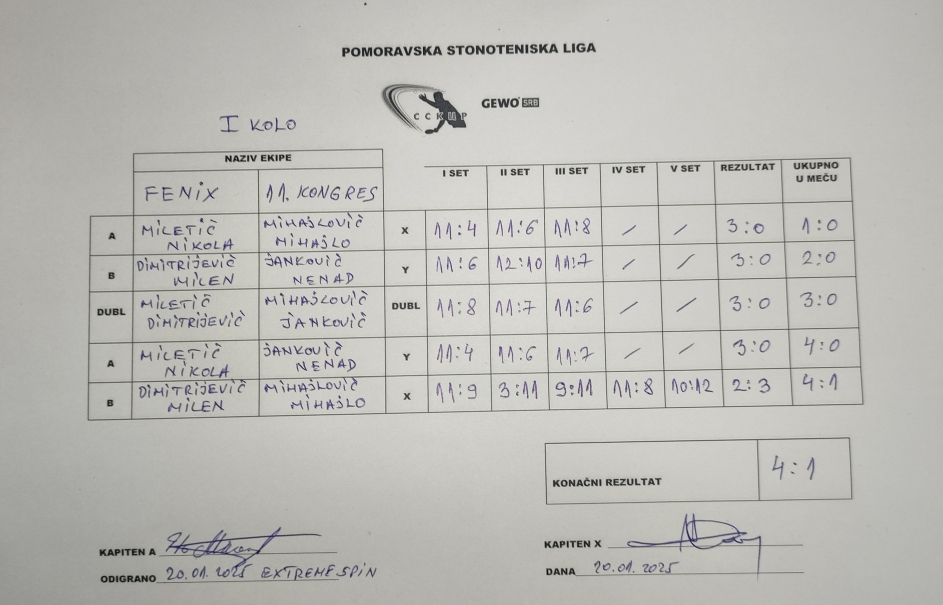 POMORAVSKA STONOTENISKA LIGA
CCKПP GEWO SRB
I KOLO
NAZIV EKIPE I SET II SET III SET IV SET V SET REZULTAT UKUPNO U MEČU
FENIX 11. KONGRES
A MILETIČ NIKOLA MIHAJLOVIČ MIHAJLO X 11:4 11:6 11:8 / / 3:0 1:0
B DIMITRIJEVIČ MILEN JANKOVIČ NENAD Y 11:6 12:10 11:7 / / 3:0 2:0
DUBL MILETIČ DIMITRIJEVIČ MIHAJLOVIČ JANKOVIČ DUBL 11:8 11:7 11:6 / / 3:0 3:0
A MILETIČ NIKOLA JANKOVIČ NENAD Y 11:4 11:6 11:7 / / 3:0 4:0
B DIMITRIJEVIČ MILEN MIHAJLOVIČ MIHAJLO X 11:9 3:11 9:11 11:8 10:12 2:3 4:1
KONAČNI REZULTAT 4:1
KAPITEN A KAPITEN X
ODIGRANO 20.01.2025 EXTREME SPIN DANA 20.01.2025